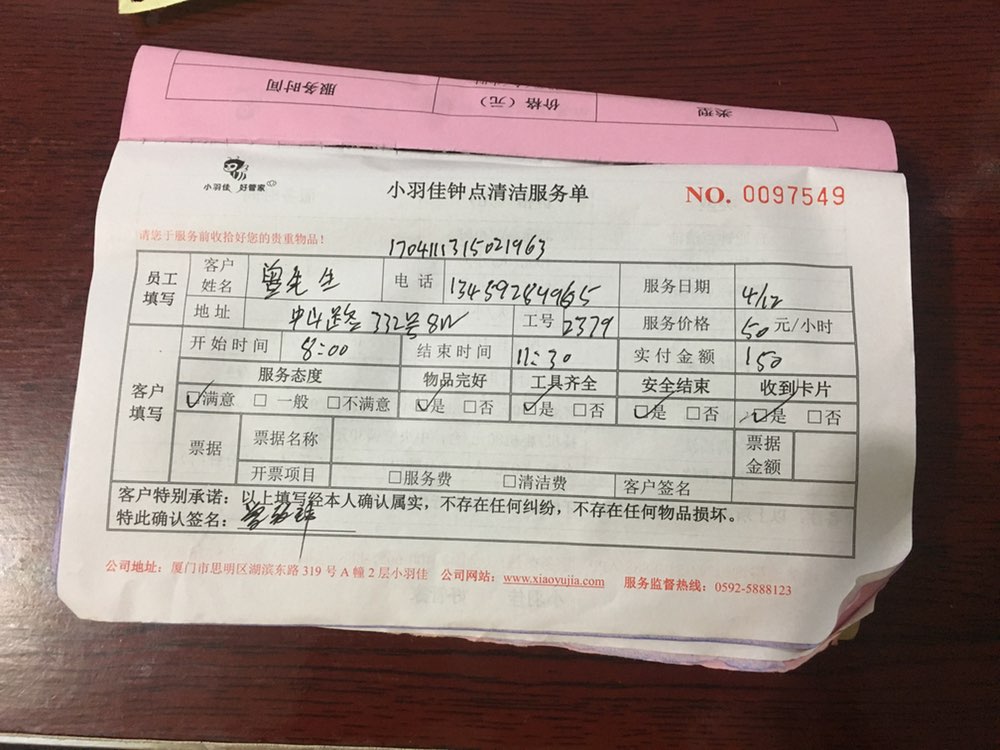 服务时间 价格（元） 类型
小羽佳 好管家
小羽佳钟点清洁服务单
NO. 0097549
请您于服务前收拾好您的贵重物品！
1704111315021963
员工填写 客户姓名 曾先生 电话 服务日期 4/12
地址 332号 工号 2379 服务价格 50元/小时
开始时间 8:00 结束时间 11:30 实付金额 150
客户填写 服务态度 物品完好 工具齐全 安全结束 收到卡片
☑满意 □一般 □不满意 ☑是 □否 ☑是 □否 ☑是 □否 ☑是 □否
票据 票据名称 票据金额
开票项目 □服务费 □清洁费 客户签名
客户特别承诺：以上填写经本人确认属实，不存在任何纠纷，不存在任何物品损坏。
特此确认签名：
公司地址：厦门市思明区湖滨东路 319 号 A 幢 2 层小羽佳 公司网站：www.xiaoyujia.com 服务监督热线：0592-5888123